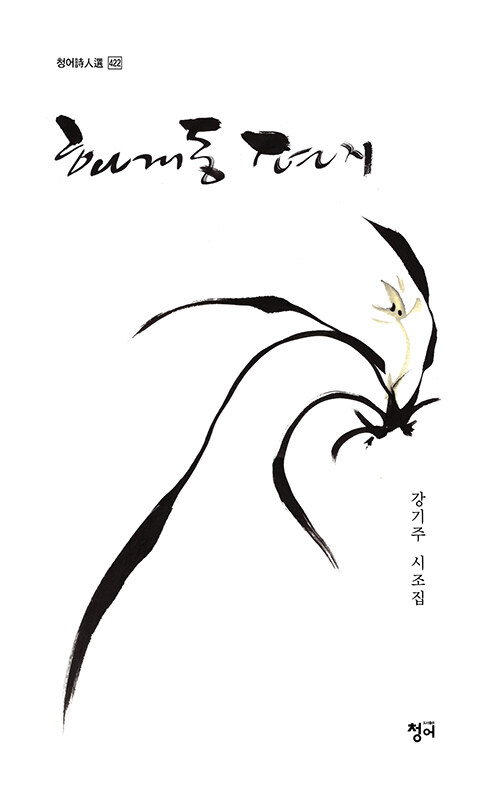 청어詩人選 422
편지
강기주 시조집
도서출판
청어